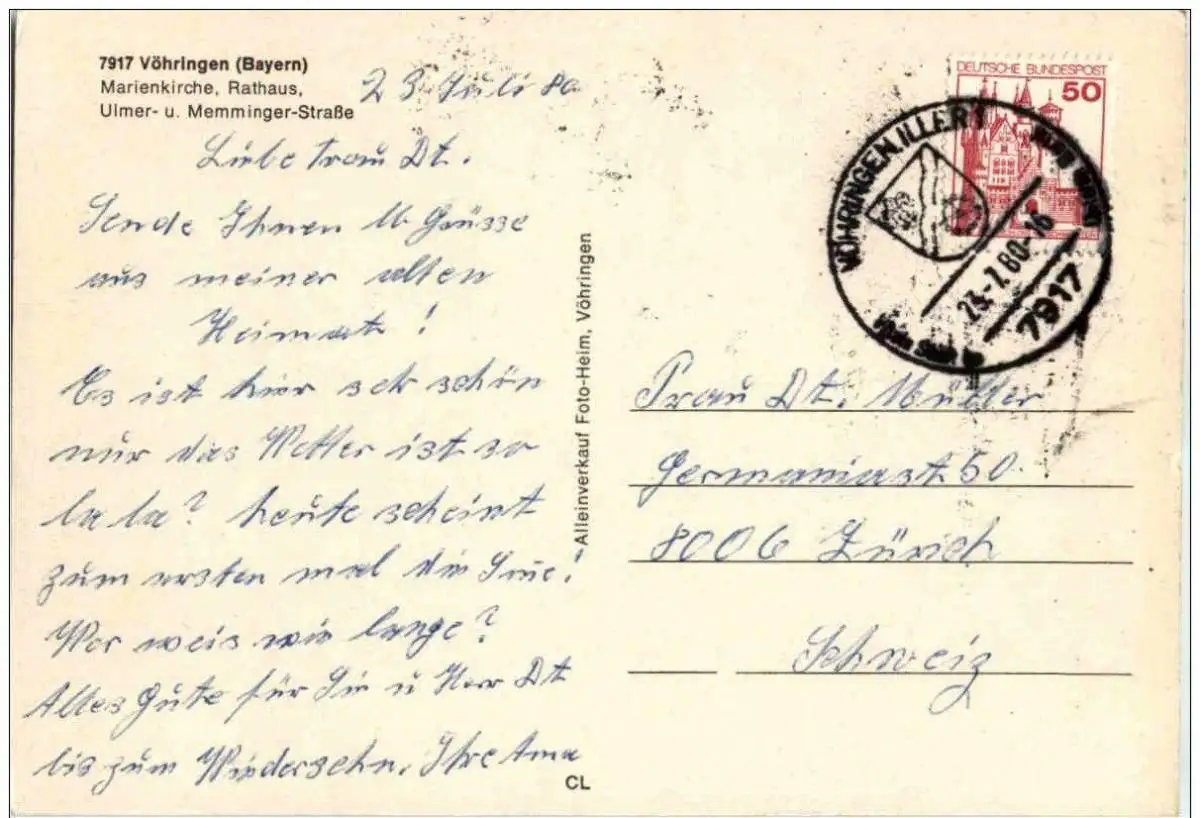 7917 Vöhringen (Bayern)
Marienkirche, Rathaus,
Ulmer- u. Memminger-Straße
23 Juli 80
Liebe Frau Dt.
Sende Ihnen Grüsse
aus meiner alten
Heimat!
Es ist hier seh schön
nur das Wetter ist so
la la? heute scheint
zum ersten mal die
Wer weis wie lange?
Alles Gute für Sie u Herr Dt
bis zum Wiedersehn. Ihre
Alleinverkauf Foto-Heim, Vöhringen
CL
DEUTSCHE BUNDESPOST
50
VÖHRINGEN, ILLER 1
23.-7.80-16
7917
Frau Dt. Müller
Germaniast 50.
8006 Zürich
Schweiz